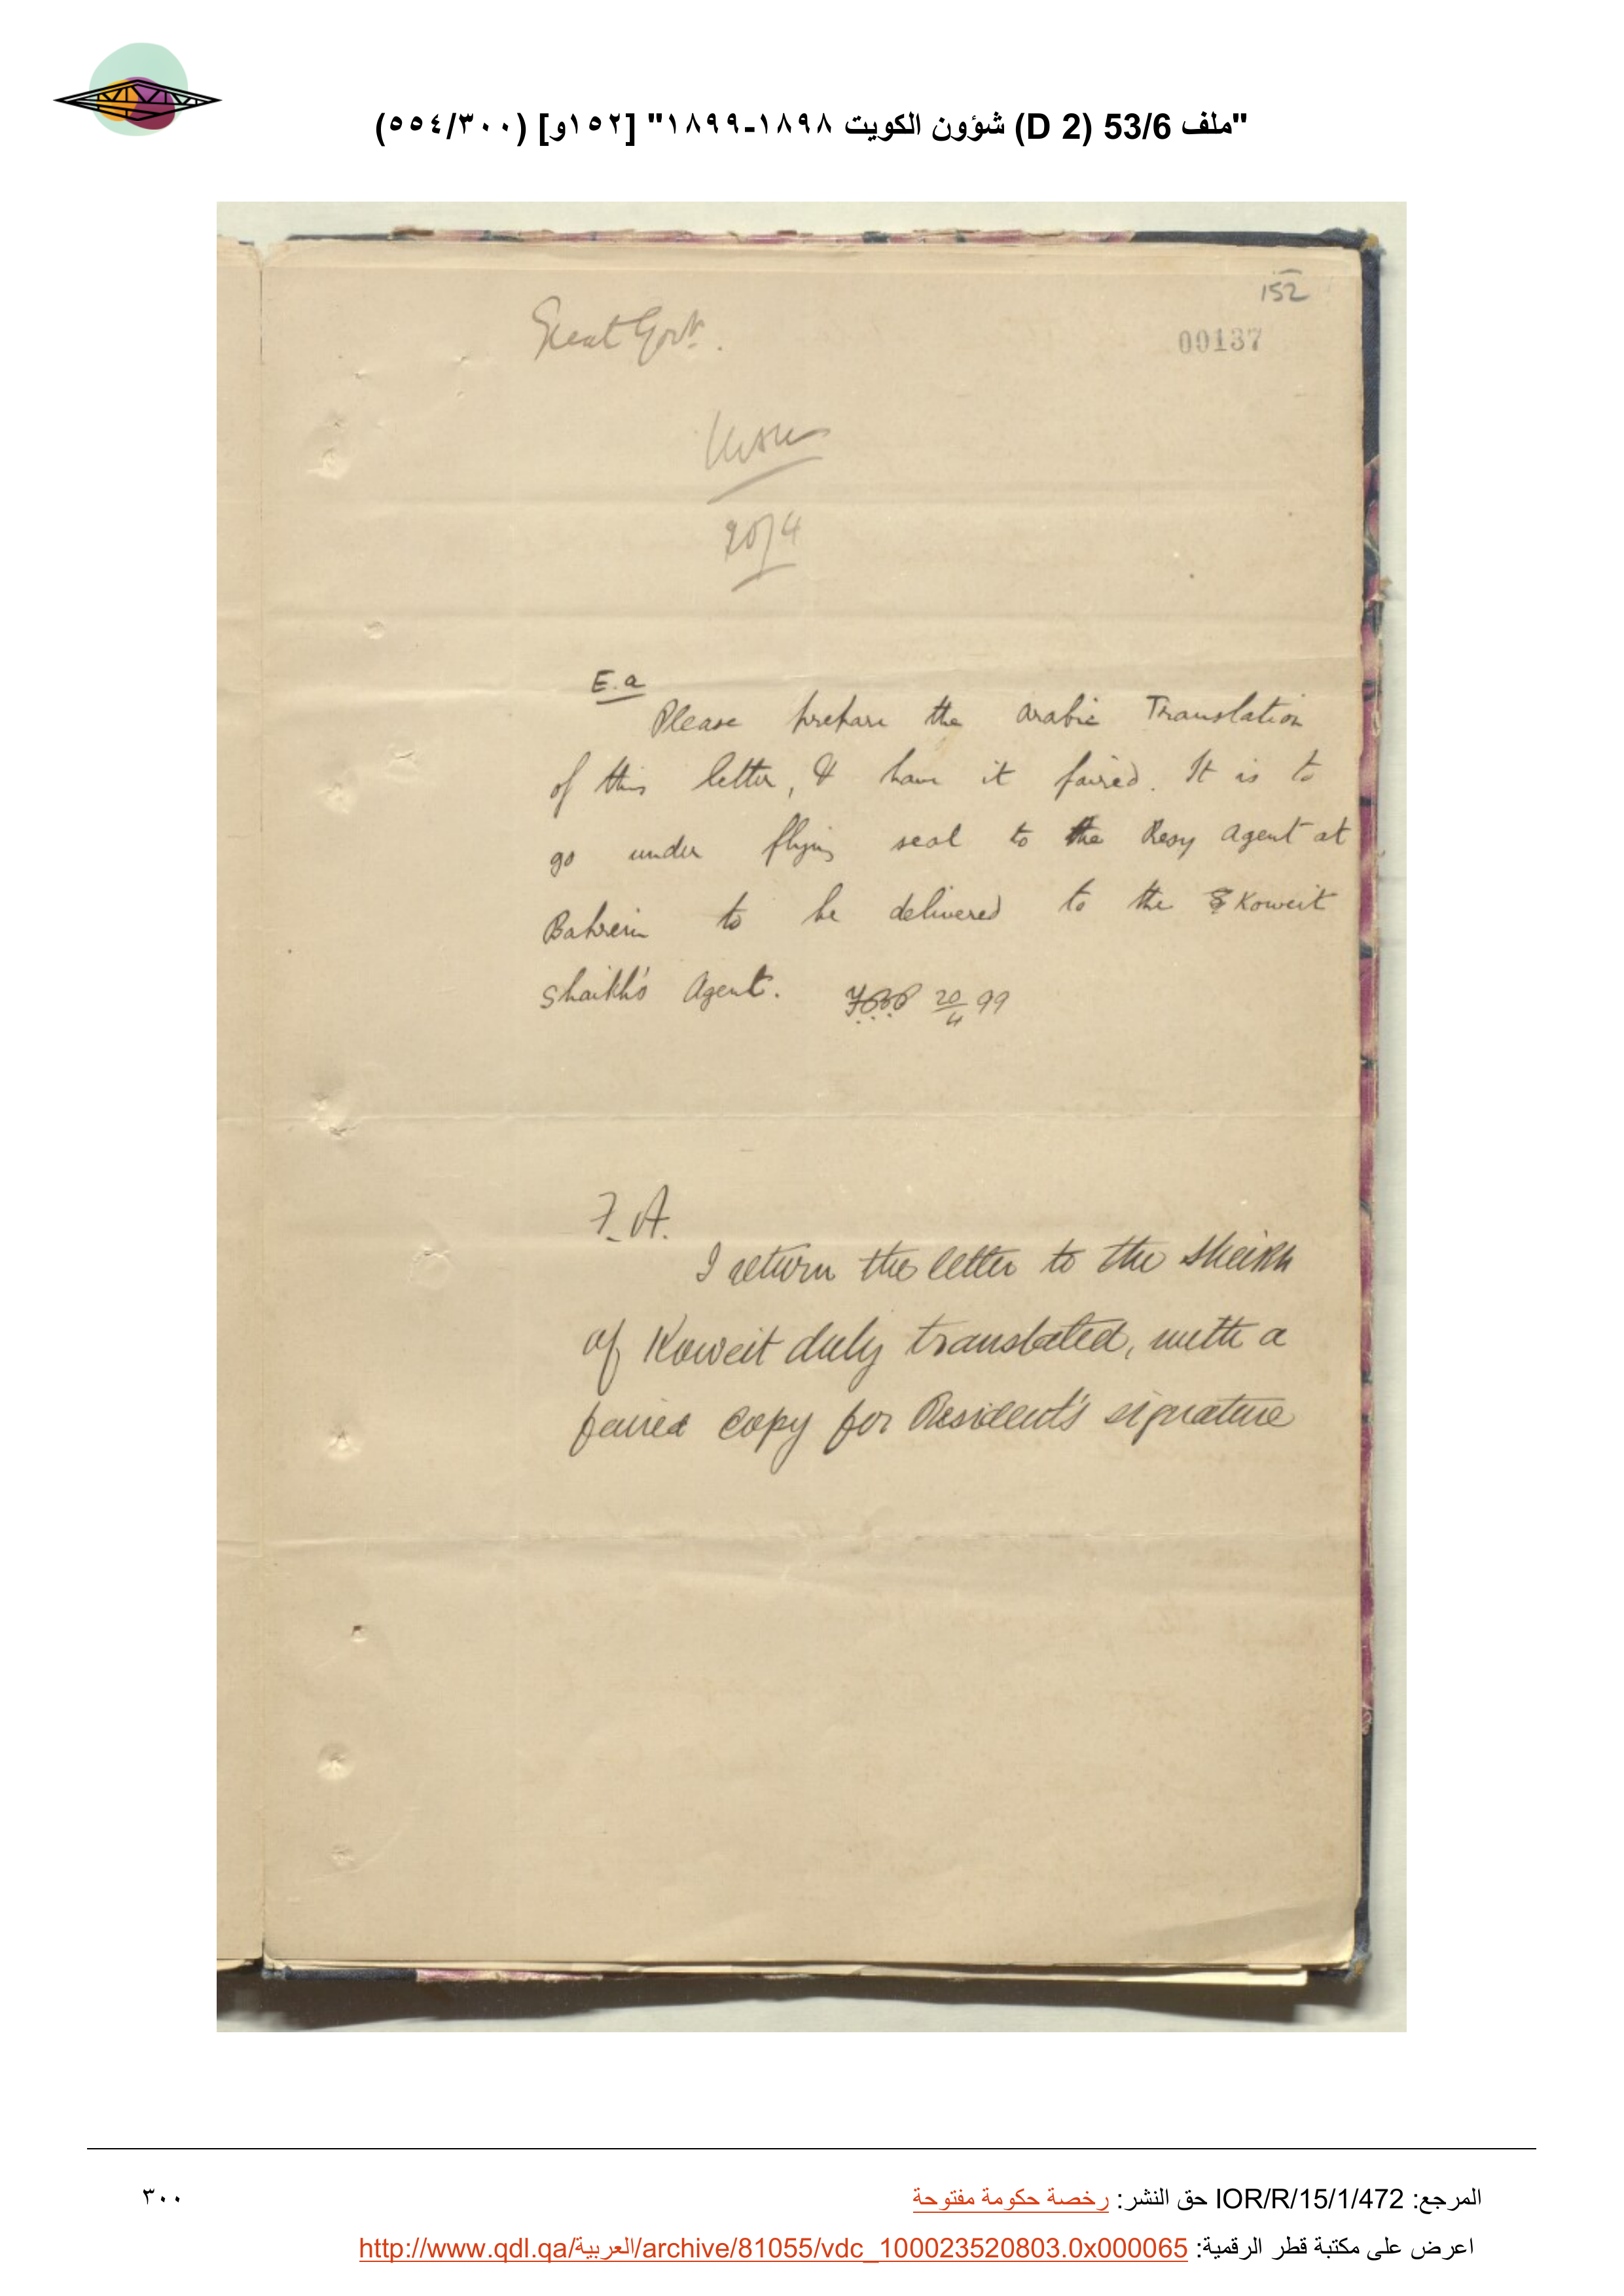 "ملف 53/6 (D 2) شؤون الكويت ١٨٩٨-١٨٩٩" [١٥٢و] (٣٠٠/٥٥٤)
152
00137
Govt.
20/4
E.a
Please prepare the Arabic Translation
of this letter, & have it faired. It is to
go under flying seal to the Resy Agent at
Bahrein to be delivered to the Koweit
Shaikh's Agent. 20/4 99
F.A.
I return the letter to the Sheikh
of Koweit duly translated, with a
faired copy for Resident's signature
المرجع: IOR/R/15/1/472 حق النشر: رخصة حكومة مفتوحة
٣٠٠
اعرض على مكتبة قطر الرقمية: http://www.qdl.qa/العربية/archive/81055/vdc_100023520803.0x000065